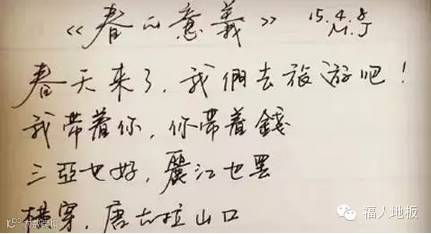 《春の意義》 15.4.8
M.J
春天来了，我們去旅游吧！
我带着你，你带着錢
三亞也好，麗江也罢
横穿，唐古拉山口
福人地板